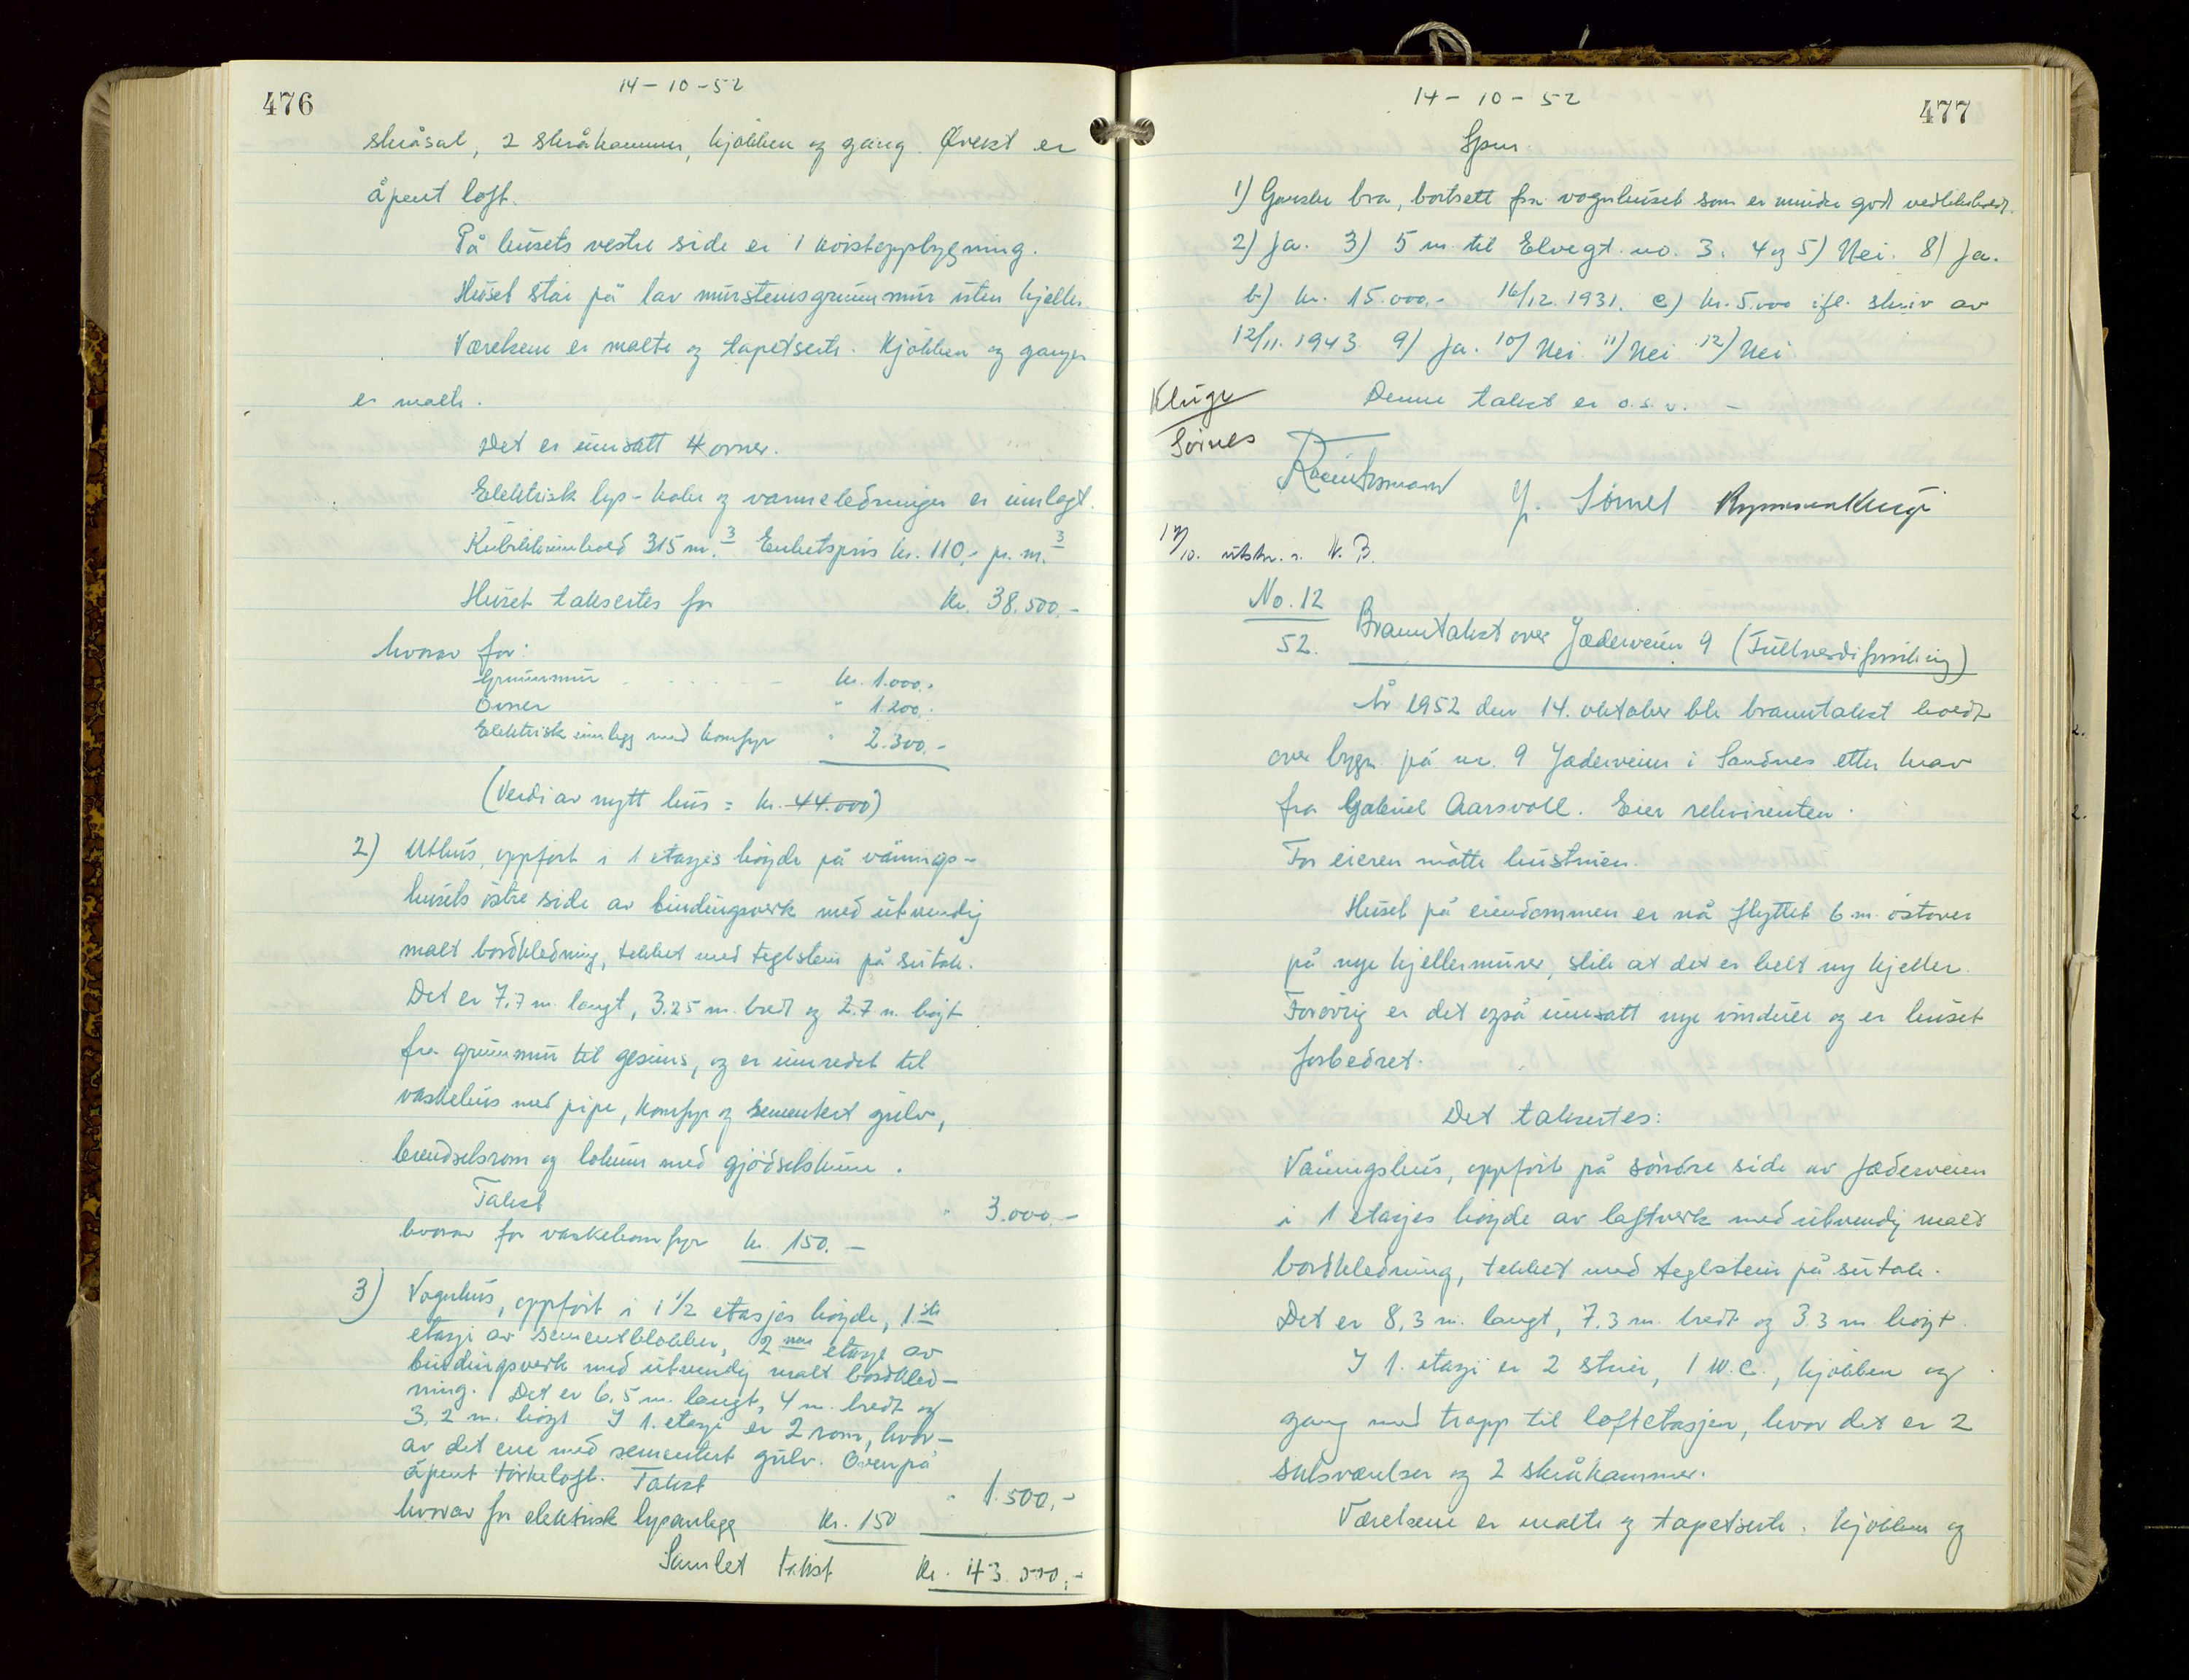 476
14 - 10 - 52
skråsal, 2 skråkammer, kjøkken og gang. Øverst er
åpent loft.
På husets vestre side er 1 kvistoppbygning.
Huset står på lav murstensgrunnmur uten kjeller.
Værelsene er malte og tapetserte. Kjøkken og ganger
er malte.
Det er innsatt 4 ovner.
Elektrisk lys- koke og varmeledninger er innlagt.
Kubikkinnhold 315 m.3 Enhetspris kr. 110,- pr. m.3
Huset takseres for Kr. 38.500.-
hvorav for:
Grunnmur . . . . . . - kr. 1.000,-
Ovner " 1.200,-
Elektrisk innlegg med komfyr " 2.300.-
(Verdi av nytt hus = kr. 44.000)
2) Uthus, oppført i 1 etasjes høyde på vånings-
husets østre side av bindingsverk med utvendig
malt bordkledning, tekket med teglstein på sutak.
Det er 7.7 m. langt, 3.25 m. bredt og 2.7 m. høyt
fra grunnmur til gesims, og er innredet til
vaskehus med pipe, komfyr og sementert gulv,
brendselsrom og lokum med gjødselskum.
Takst " 3.000.-
hvorav for vaskekomfyr kr. 150.-
3) Vognhus, oppført i 1 1/2 etasjes høyde, 1ste
etasje av sementblokker, 2nen etasje av
bindingsverk med utvendig malt bordkled-
ning. Det er 6.5 m. langt, 4 m. bredt og
3.2 m. høyt. I 1. etasje er 2 rom, hvor-
av det ene med sementert gulv. Ovenpå
åpent tørkeloft. Takst " 1.500,-
hvorav for elektrisk lysanlegg kr. 150
Samlet takst Kr. 43.000,-
477
14 - 10 - 52
Spm.
1) Ganske bra, bortsett fra vognhuset som er mindre godt vedlikeholdt.
2) Ja. 3) 5 m. til Elvegt. no. 3. 4 og 5) Nei. 8) Ja.
b) kr. 15.000.- 16/12. 1931. c) kr. 5.000 ifl. skriv av
12/11. 1943 9) Ja. 10) Nei 11) Nei 12) Nei
Kluge
Sørnes
Denne takst er o.s.v. -
J. Sørnes
17/10. utskr. s. N. B.
No. 12
52.
Branntakst over Jæderveien 9 (Fullverdiforsikring)
År 1952 den 14. oktober ble branntakst holdt
over bygn. på nr. 9 Jæderveien i Sandnes etter krav
fra Gabriel Aarsvoll. Eier rekvirenten.
For eieren møtte hustruen.
Huset på eiendommen er nå flyttet 6 m. østover
på nye kjellermurer, slik at det er helt ny kjeller.
Forøvrig er det også innsatt nye vinduer og er huset
forbedret.
Det takseres:
Våningshus, oppført på søndre side av Jæderveien
i 1 etasjes høyde av laftverk med utvendig mald
bordkledning, tekket med teglstein på sutak.
Det er 8.3 m. langt, 7.3 m. bredt og 3.3 m høyt.
I 1. etasje er 2 stuer, 1 W.C., kjøkken og
gang med trapp til loftetasjen, hvor det er 2
salsværelser og 2 skråkammer.
Værelsene er malte og tapetserte. Kjøkken og